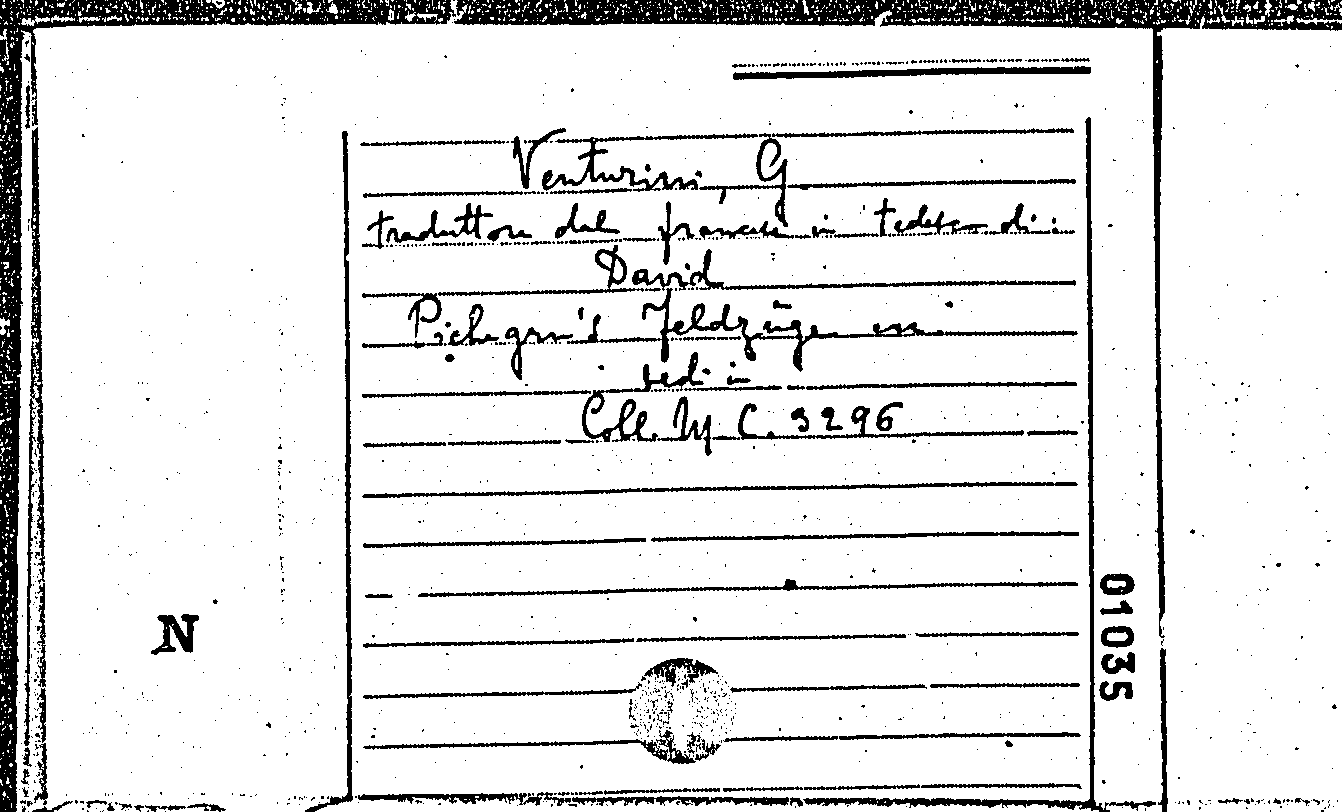 Venturini, G.
traduttore dal francese in tedesco di:
David
Pichegru's Feldzüge ecc.
vedi in
Coll. M C. 3296
N
01035